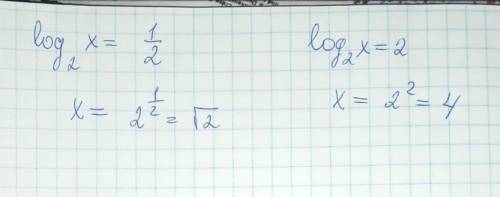 log₂ x = 1/2
x = 2^(1/2) = √2
log₂ x = 2
x = 2² = 4